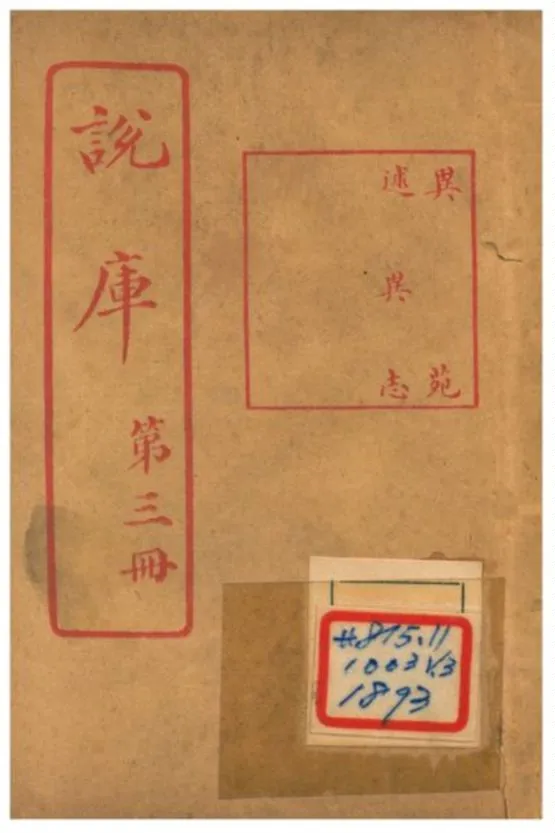 說庫
第三冊
異苑
述異志
#815.11
1003 V.3
1893